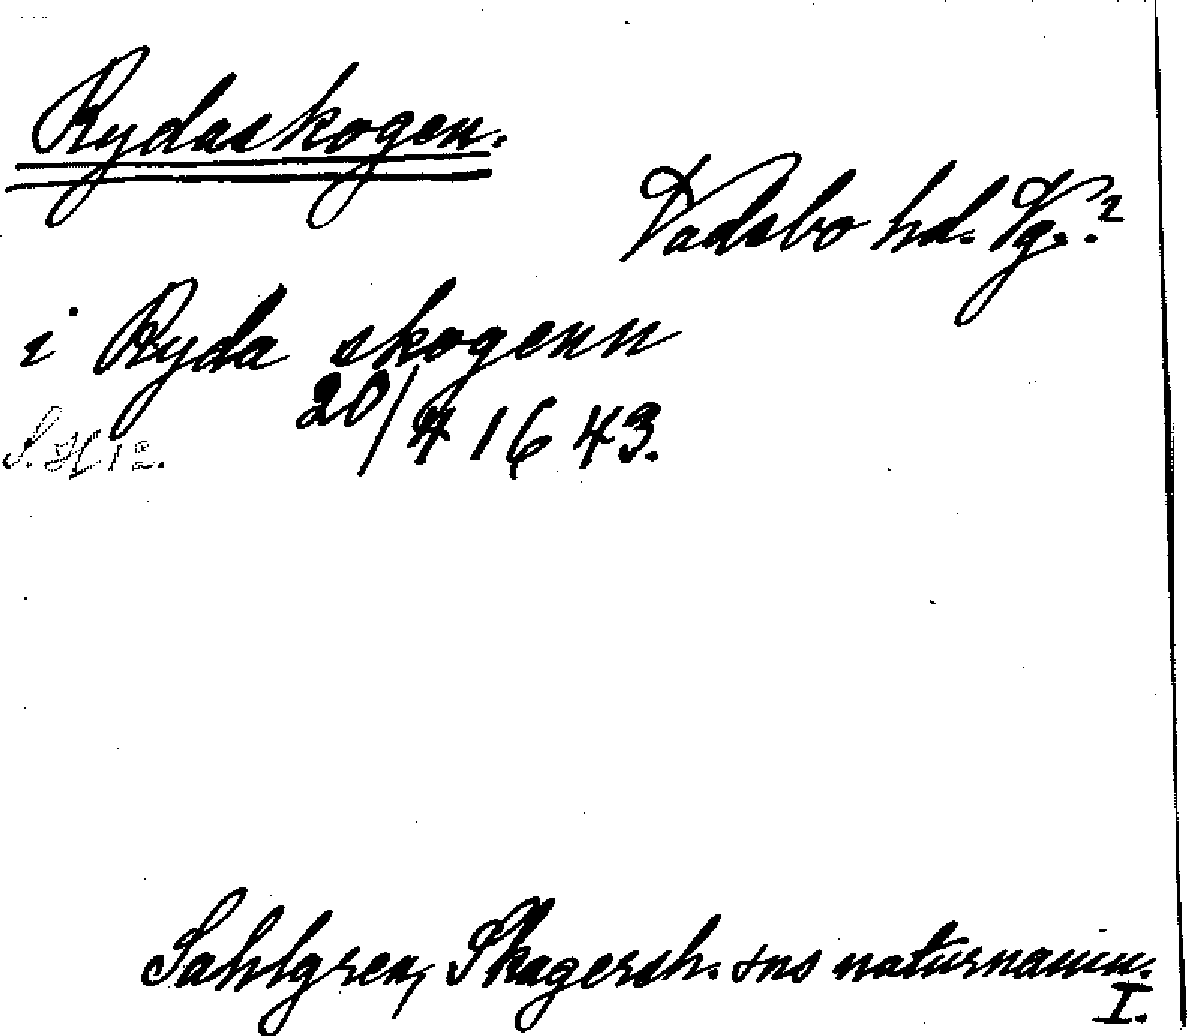 Rydaskogen.
Vadsbo hd. Vg.?
i Ryda skogenn
20/4 1643.
Sahlgren, Skagersh. sns naturnamn.
I.